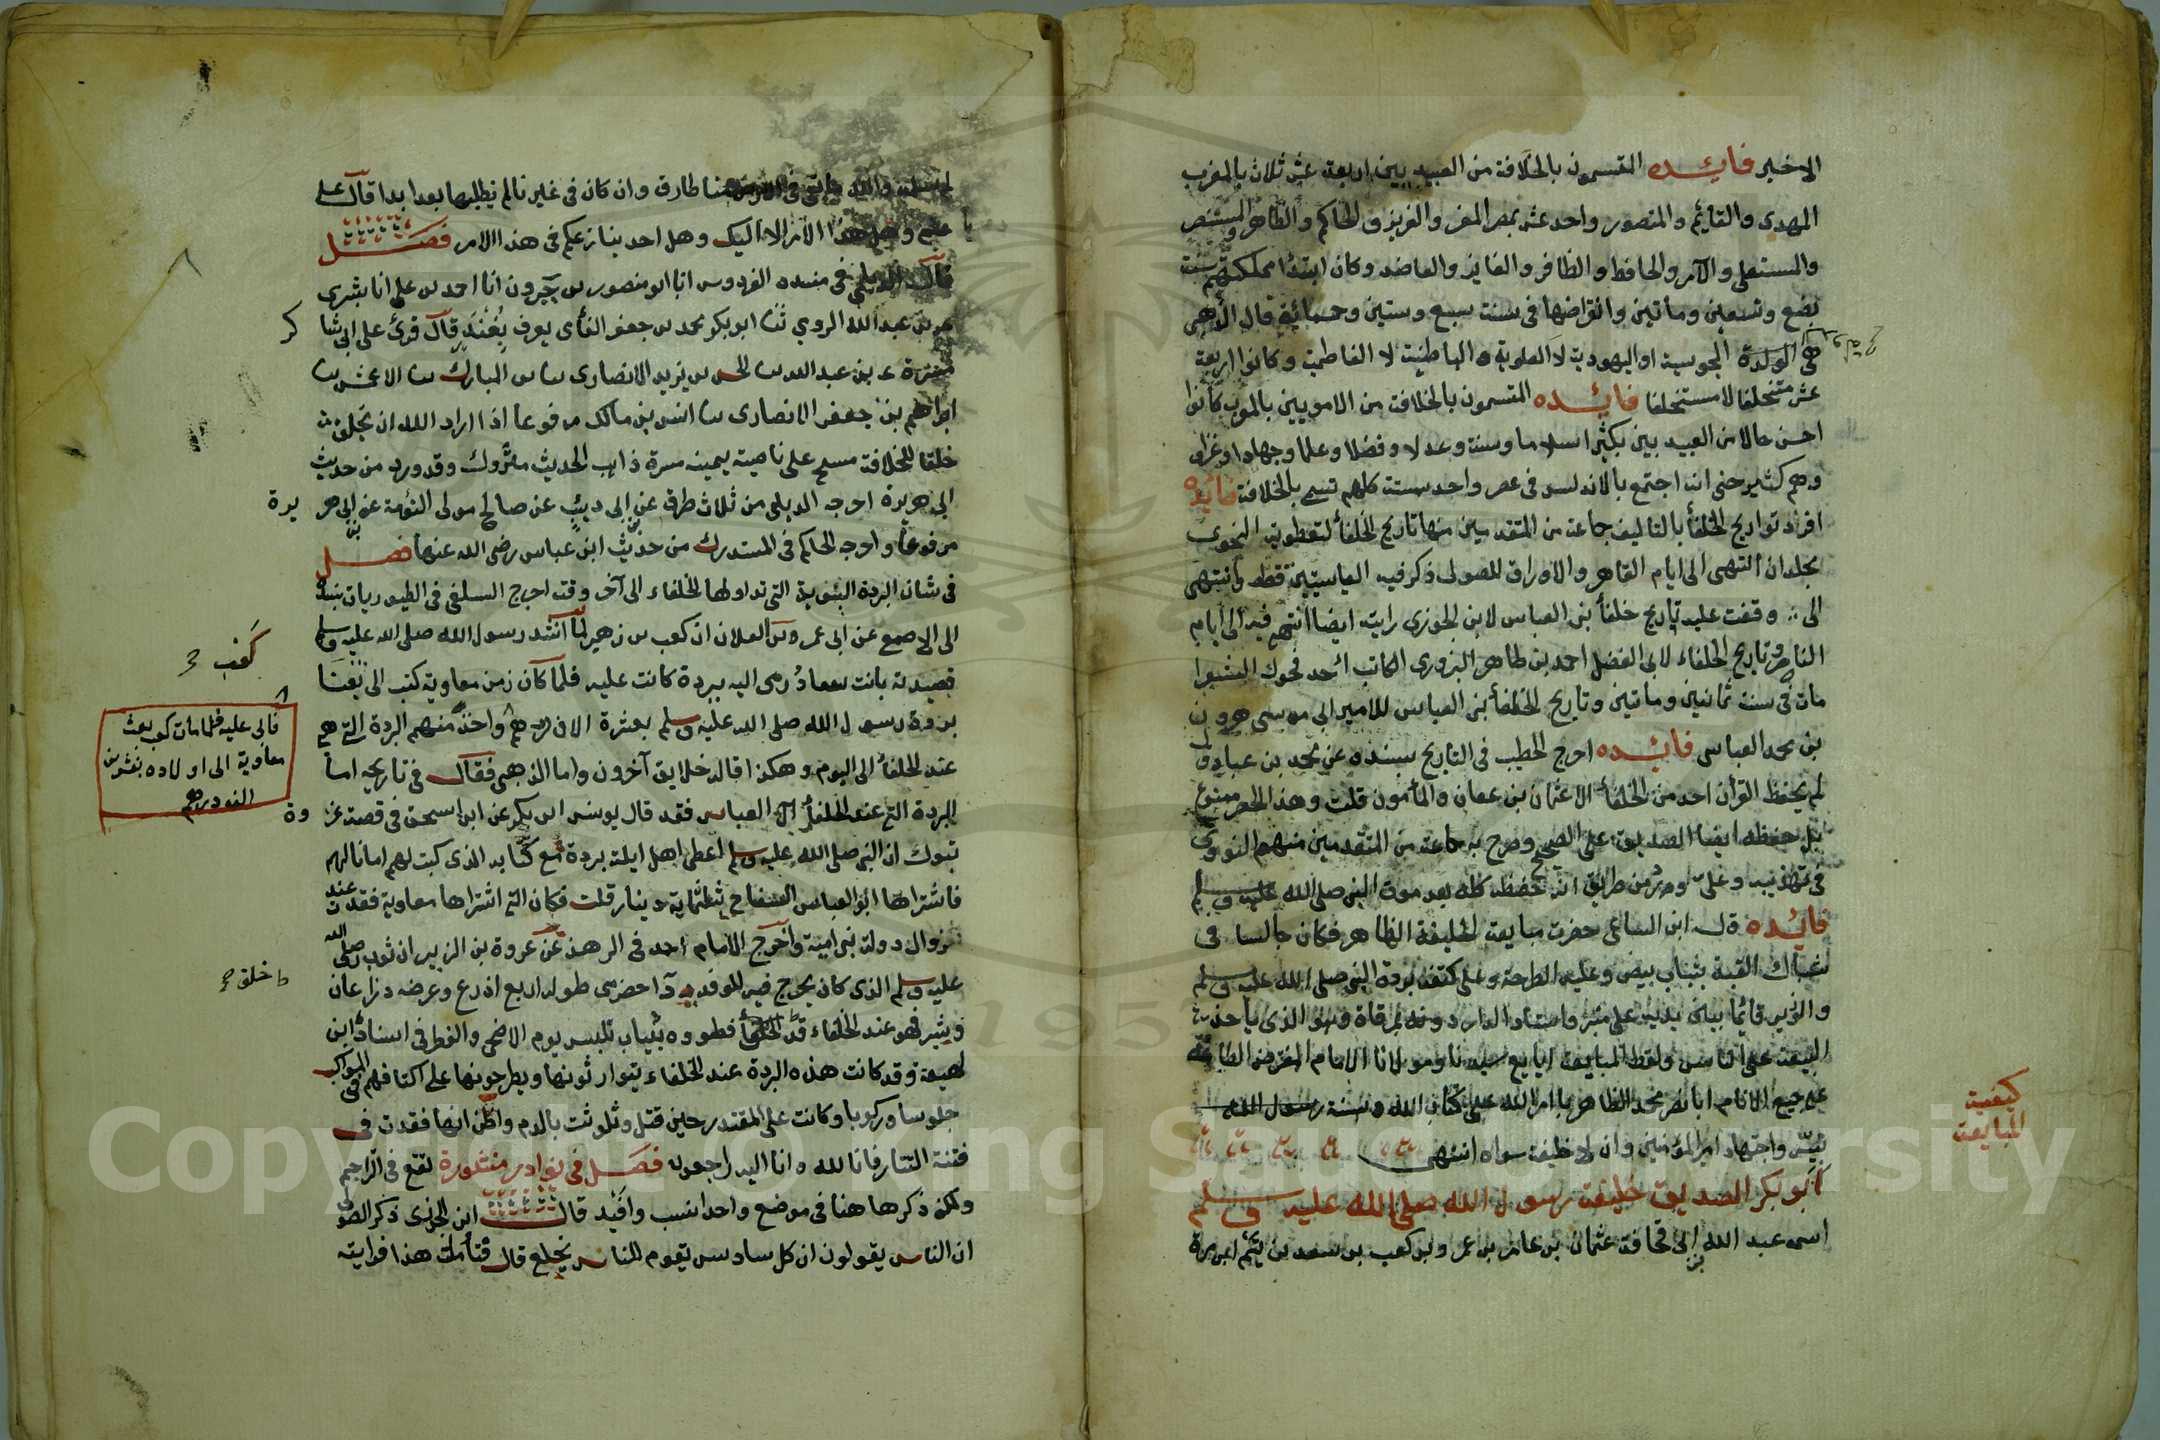 الاخير فائده المتسمون بالخلافة من العبيديين اربعة عشر ثلاث بالمغرب
المهدى والقائم والمنصور واحد عشر بمصر المعز والعزيز والحاكم والظاهر والمستنصر
والمستعلى والآمر والحافظ والظافر والفايز والعاضد وكان ابتدأ مملكتهم سنة
بضع وتسعين ومأتين وانقراضها فى سنت سبع وستين وخمسائة قال الذهبى
هى الدولة المجوسية او اليهودية لا العلوية والباطنية لا الفاطمية وكانوا اربعة
عشر متخلفا لا مستخلفا فائده المتسمون بالخلافة من الامويين بالمغرب كانوا
احسن حالا من العبيديين بكثير اسلاما وسنة وعدلا وفضلا وعلما وجهادا وغزوا
وهم كثير حتى انه اجتمع بالاندلس فى عصر واحد ستة كلهم تسمى بالخلافة فائده
افرد تواريخ الخلفأ بالتاليف جماعة من المتقدمين منها تاريخ الخلفأ لنفطويه النحوى
مجلدان انتهى الى ايام القاهر والاوراق للصولى ذكر فيه العباسيين فقط وانتهى
الى وقفت عليه وتاريخ خلفأ بنى العباس لابن الجوزى رايته ايضا انتهى فيه الى ايام
الناصر وتاريخ الخلفاء لابى الفضل احمد بن طاهر المروزى الكاتب احد فحول الشعرا
مات فى سنت ثمانين ومأتين وتاريخ الخلفأ بنى العباس للامير ابى موسى هرون
بن محمد العباسى فائده اخرج الخطيب فى التاريخ بسنده عن محمد بن عباد قال
لم يحفظ القرأن احد من الخلفأ الا عثمان بن عفان والمأمون قلت وهذا الحصر ممنوع
بل حفظه ايضا الصديق على الصحيح وصرح به جماعة من المتقدمين منهم النووى
فى تهذيبه وعلى ورد من طريق انه حفظه كله بعد موت النبى صلى الله عليه وسلم
فائده قال ابن الساعى حضرت مبايعة الخليفة الظاهر فكان جالسا فى
شباك القبة بثياب بيض وعليه الطرحة وعلى كتفه بردة النبى صلى الله عليه وسلم
والوزير قائما بين يديه على منبر واستاد الدار دونه بمرقاة وهو الذى يأخذ
البيعة على الناس ولفظ المبايعة ابايع سيدنا ومولانا الامام المفترض الطاعة
على جميع الانام ابا نصر محمد الظاهر بامر الله على كتاب الله وسنة رسول الله
نبيه واجتهاد امير المؤمنين وان لا خليفة سواه انتهى
ابو بكر الصديق خليفة رسول الله صلى الله عليه وسلم
اسمه عبد الله بن ابى قحافة عثمان بن عامر بن عمرو بن كعب بن سعد بن تيم ابن مرة
كيفية
المبايعة
هنا طارق وان كان فى غيرنا لم نطلبها بعد ابدا قال على
الامر الا اليك وهل احد ينازعكم فى هذا الامر فصل
قال الديلمى فى مسنده الفردوس انا ابو منصور بن خيرون انا احمد بن على انا بشرى
بن عبد الله الرومي ثنا ابو بكر محمد بن جعفر الفأى يعرف بغندر قال قرئ على ابى شا كر
ميسرة بن عبد الله الحسن بن يزيد الانصارى بن المبارك الاعمش
ابراهيم بن جعفر الانصارى انس بن مالك مرفوعا اذا اراد الله ان يخلق
خلقا للخلافة مسح على ناصيته بيمينه ذاهب الحديث متروك وقد ورد من حديث
ابى هريرة اخرجه الديلمى من ثلاث طرق عن ابن ابى ذئب عن صالح مولى التؤمة عن ابى هر يرة
مرفوعاً واخرجه الحاكم فى المستدرك من حديث ابن عباس رضى الله عنهما فصل
فى شان البردة النبوية التى تداولها الخلفاء الى آخر وقت اخرج السلفى فى الطيوريات بسنده
الى الاصمع عن ابى عمرو بن العلان ان كعب بن زهير لما انشد رسول الله صلى الله عليه وسلم
قصيدته بانت سعادُ رمى اليه ببردة كانت عليه فلما كان زمن معاوية كتب الى بعنا
بردة رسول الله صلى الله عليه وسلم بعشرة الاف درهم واخذ منهم البردة التى هى
عند الخلفأ الى اليوم وهكذا قاله خلايق آخرون واما الذهبى فقال فى تاريخه اما
البردة التى عند الخلفأ آل العباس فقد قال يونس ابن بكر عن ابن اسحق فى قصة غز وة
تبوك ان النبى صلى الله عليه وسلم اعطى اهل ايلة بردة مع كتابه الذى كتب لهم امانا لهم
فاشتراها ابو العباس السفاح بثلثماية دينار قلت فكان التى اشتراها معاوية فقدت عند
زوال دولة بنى امية واخرج الامام احمد فى الزهد عن عروة بن الزبير ان ثوب رسول الله صلى
عليه وسلم الذى كان يخرج فيه للوفد ردآ حضرمى طوله اربع اذرع وعرضه ذراعان
وشبر فهو عند الخلفاء قد فطووه بثياب تلبس يوم الاضحى والفطر فى اسناده ابن
لهيعة وقد كانت هذه البردة عند الخلفاء يتوارثونها ويطرحونها على اكتافهم فى المواكب
جلوسا وركوبا وكانت على المقتدر حين قتل وتلوثت بالدم واظن انها فقدت فى
فتنة التتار فانا لله وانا اليه راجعون فصل فى نوادر منثورة تقع فى التراجم
ولكن ذكرها هنا فى موضع واحد انسب وافيد قال ابن الجوزى ذكر الصولى
ان الناس يقولون ان كل سادس يقوم للناس يخلع قال فتأملت هذا فرايته
كعب
فابى عليه فلما مات كعب بعث
معاوية الى اولاده بعشرين
الف درهم
خلق